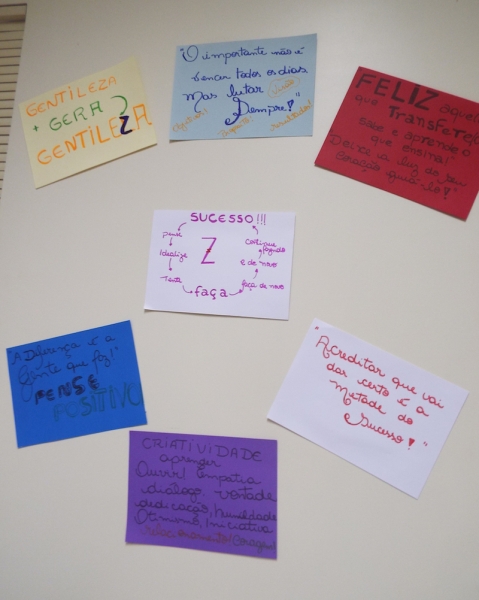 GENTILEZA
+ GERA
GENTILEZA
"O importante não é
vencer todos os dias,
Mas lutar
Sempre!"
FELIZ aquele
que Transfere
sabe e aprende o
que ensina!
Deixe a luz do seu
coração guiá-lo!
SUCESSO!!!
pense
Idealize
Z
Tente
faça
faça de novo
e de novo
continue
fazendo
"A Diferença é a
gente que faz!"
PENSE
POSITIVO
"Acreditar que vai
dar certo é a
Metade do
Sucesso!"
CRIATIVIDADE
aprender
Ouvir! Empatia
diálogo. Vontade
dedicação, humildade
Otimismo, Iniciativa
Coragem!